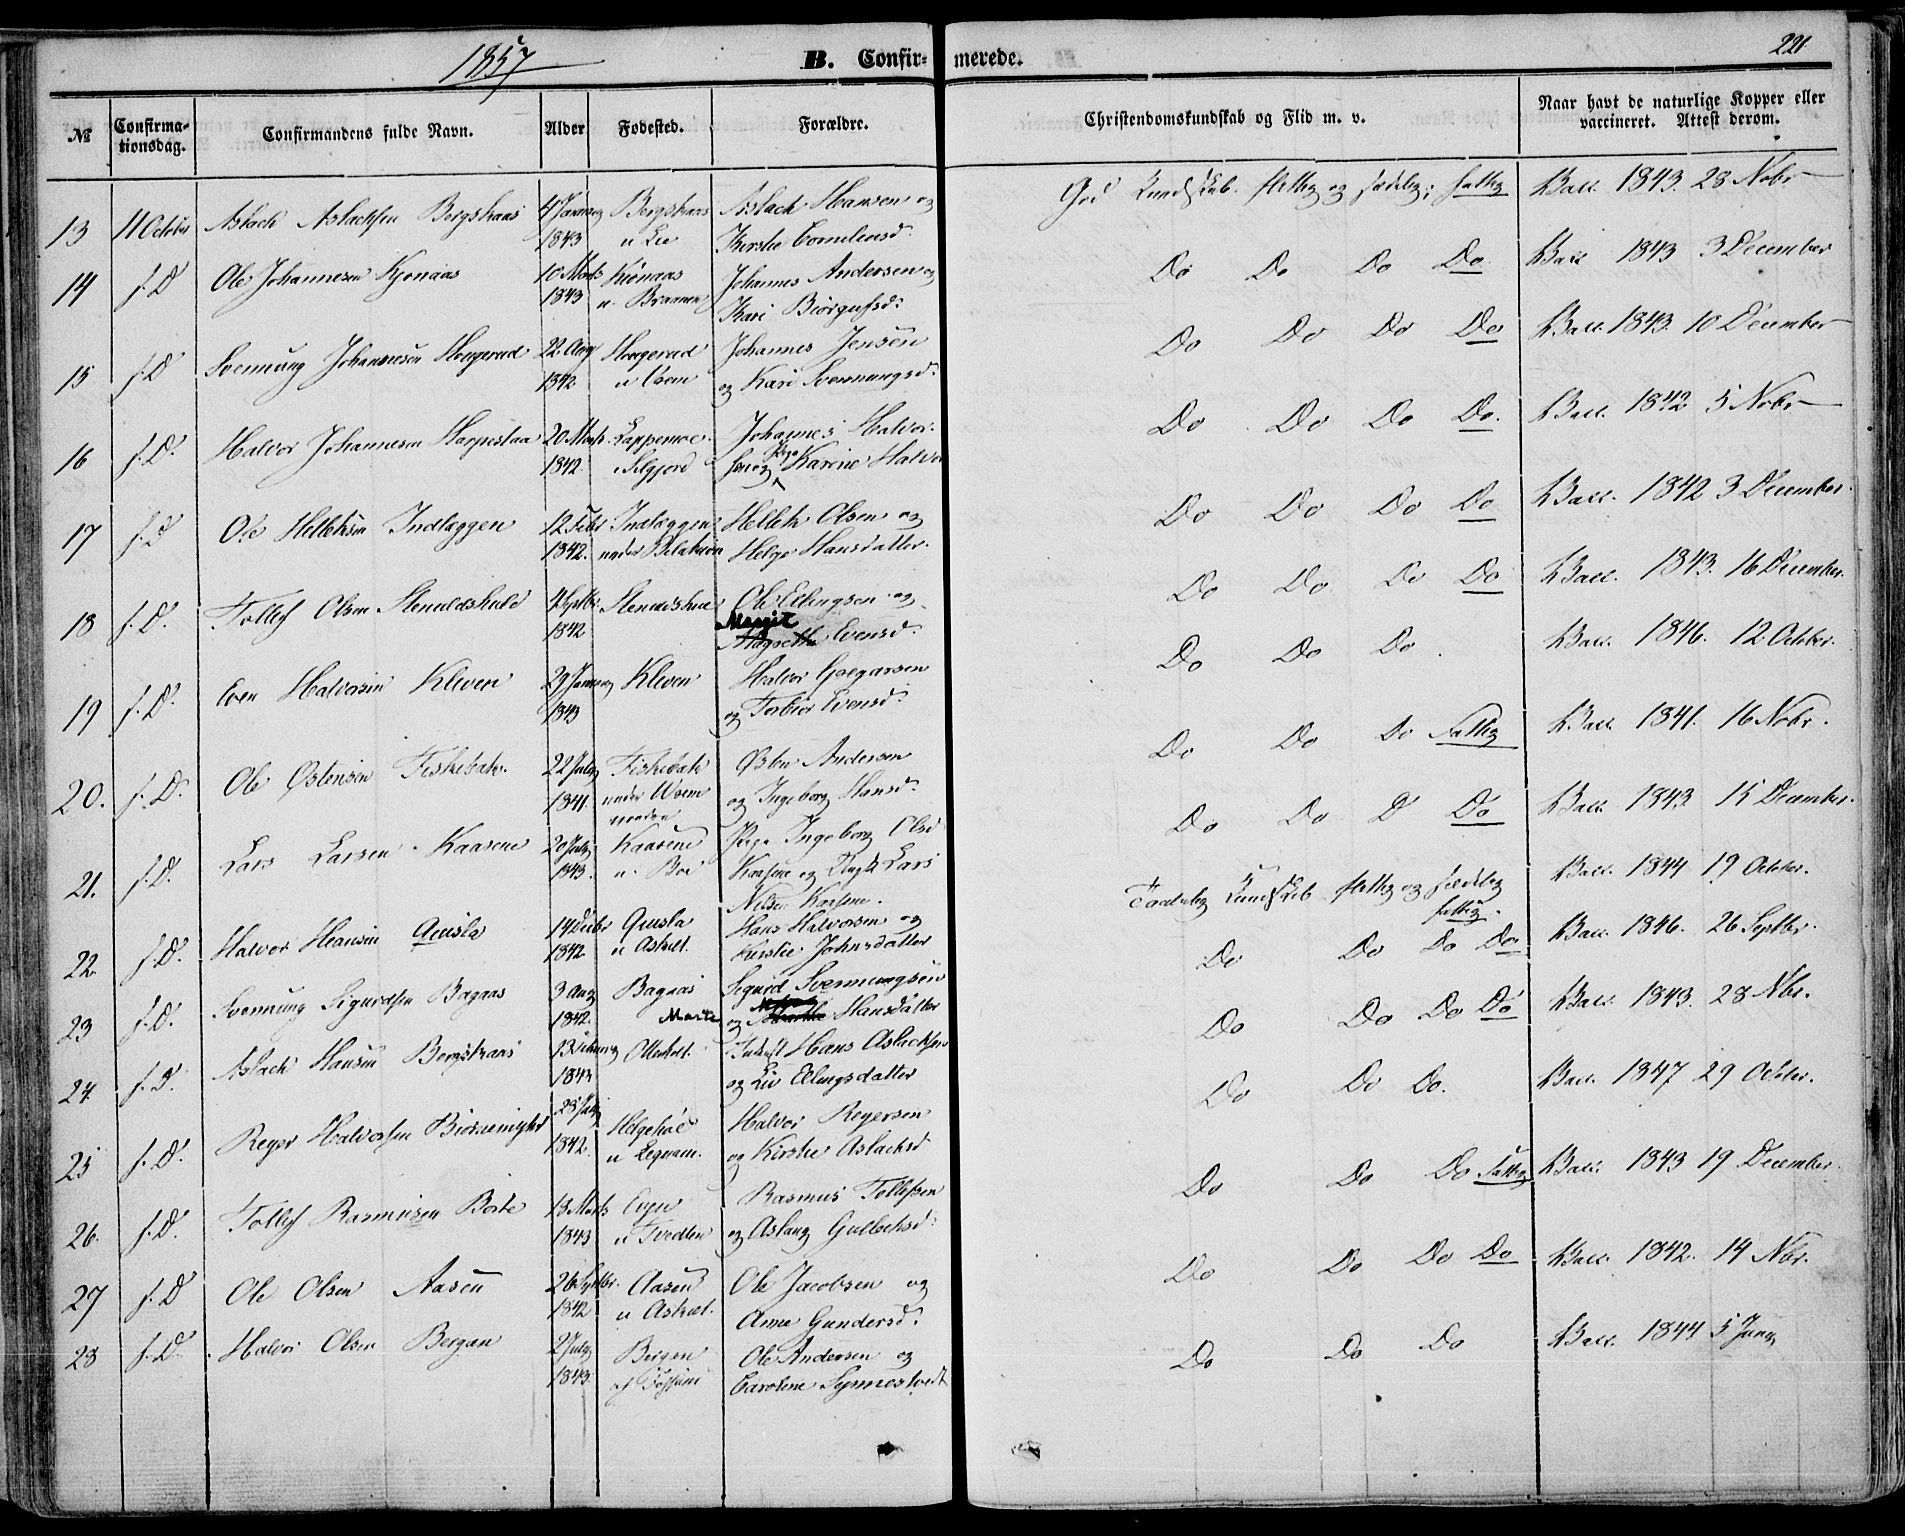 1857
B. Confir- merede.
221
№
Confirma-
tionsdag.
Confirmandens fulde Navn.
Alder
Fødested.
Forældre.
Christendomskundskab og Flid m. v.
Naar havt de naturlige Kopper eller
vaccineret. Attest derom.
13 11 October Aslach Aslachsen Bergshaas 4 Januar Bergshaas Aslach Hansen og God Kundskab. flittig og sædelig; fattig Vacc. 1843. 28 Nobr
1843 u Lie Kirstie Corneliusd.
14 f. D Ole Johannesen Kjønaas 10 Marts Kiønaas Johannes Andersen og Do Do Do Do Vacc 1843 3 December
1843 u. Kari Biørgufsd:
15 f. D Svennung Johannesen Haugerud 22 Aug Haugerud Johannes Jensen Do Do Do Do Vacc. 1843. 10 December
1842 u og Kari Svennungsd:
16 f. D. Halvor Johannesen 20 Marts Johannes Halvor- Do Do Do Do. Vacc. 1842 5 Nobr
1842 Selgjord sen og Karine Halvor
17 f. D Ole Helleksen Indlæggen 12 Febr Indlæggen Hellek Olsen og Do Do Do Do Vacc. 1842 3 December.
1842. under Helge Hansdatter.
18 f. D. Tollef Olsen 4 Septbr Ole Ellingsen og Do Do Do Do Vacc. 1843. 16 December.
1842 Margit
Evensd:
19 f. D. Even Halvorsen Kleven 29 Januar Kleven Halvor Gregarsen Do Do Do. Vacc. 1846. 12 October.
1843 og Torbior Evensd:
20. f. D. Ole Østensen Fiskebæk. 22 July Fiskebæk Østen Andersen Do Do Do Fattig Vacc. 1841. 16 Nobr.
1841. under og Ingeborg Hansd:
21. f. D. Lars Larsen Kaasene 20 July Kaasene Pige Ingeborg Olsd Do Do D Do Vacc. 1843 15 December.
1843. u. Boe Kaasene og Ungk Lars
Nilsen Kaasene.
22 f. D. Halvor Hansen Qvisla 14 Decbr Qvisla Hans Halvorsen og Taalelig Kundskab flittig og sædelig Vacc. 1844 19 October.
fattig.
1842. u Askilt. Kirstie Johnsdatter
23 f. D. Svennung Sigurdsen Bagaas 3 Aug Bagaas Sigurd Svennungsen Do Do Do Do Vacc. 1846. 26 Septbr.
1842. Marte og Hansdatter
24 f. D. Aslach Hansen Bergshaas 13 Otterholt. Hans Aslachsen Do Do Do Do Vacc. 1843. 28 Nbr.
1843 og Liv Ellingsdatter
25 f. D. Reyer Halvorsen Biørnemyhr 28 July Helgehoe Halvor Reyersen Do Do Do. Vacc. 1847 29 October.
1842. u og Kirstie Aslachsd
26. f. D. Tollef Rasmusen 13 Marts Rasmus Tollefsen Do Do Do Fattig Vacc. 1843 19 December.
1843 u Tvedten og Aslaug Gulleksd:
27 f. D Ole Olsen Aasen 26 Septbr. Aasen Ole Jacobsen og Do Do Do Do Vacc. 1842. 14 Nbr.
1842 u Askilt. Anne Gundersd:
28 f. D. Halvor Olsen Bergan 2 July Bergan Ole Andersen og Do Do Do Vacc. 1844 5 Juny
1843. af Fossum Caroline Synnestvedt